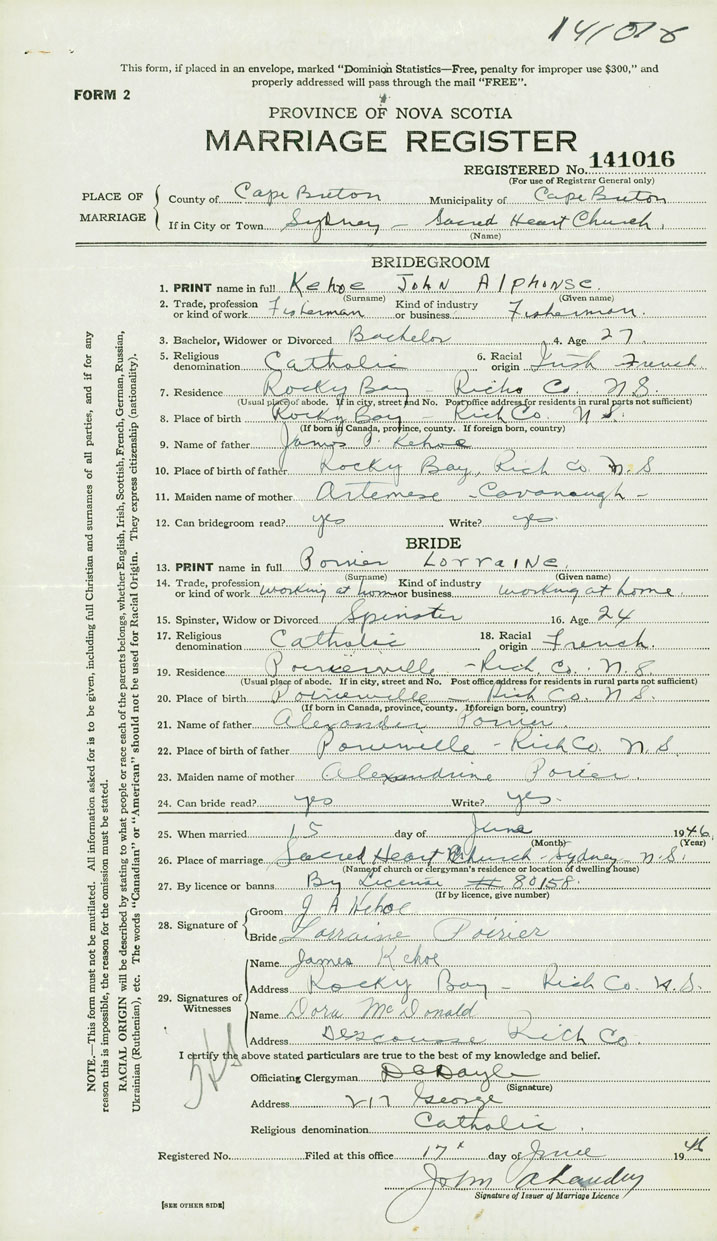 141016
This form, if placed in an envelope, marked "Dominion Statistics—Free, penalty for improper use $300," and
properly addressed will pass through the mail "FREE".
FORM 2
PROVINCE OF NOVA SCOTIA
MARRIAGE REGISTER
REGISTERED No. 141016
(For use of Registrar General only)
PLACE OF MARRIAGE
County of Cape Breton Municipality of Cape Breton
If in City or Town Sydney - Sacred Heart Church.
(Name)
BRIDEGROOM
1. PRINT name in full Kehoe John Alphonse
(Surname) (Given name)
2. Trade, profession or kind of work Fisherman Kind of industry or business Fisherman.
3. Bachelor, Widower or Divorced Bachelor 4. Age 27
5. Religious denomination Catholic 6. Racial origin Irish French
7. Residence Rocky Bay - Rich. Co. N.S.
(Usual place of abode. If in city, street and No. Post office address for residents in rural parts not sufficient)
8. Place of birth Rocky Bay Rich Co. N.S.
(If born in Canada, province, county. If foreign born, country)
9. Name of father James P. Kehoe
10. Place of birth of father Rocky Bay, Rich Co N.S
11. Maiden name of mother Artemese - Cavanaugh -
12. Can bridegroom read? yes Write? yes.
BRIDE
13. PRINT name in full Poirier Lorraine.
(Surname) (Given name)
14. Trade, profession or kind of work working at home Kind of industry or business working at home.
15. Spinster, Widow or Divorced Spinster 16. Age 24
17. Religious denomination Catholic 18. Racial origin French.
19. Residence Poirierville - Rich. Co. N.S.
(Usual place of abode. If in city, street and No. Post office address for residents in rural parts not sufficient)
20. Place of birth Poirierville - Rich Co. N.S.
(If born in Canada, province, county. If foreign born, country)
21. Name of father Alexander Poirier.
22. Place of birth of father Poirierville - Rich Co. N.S.
23. Maiden name of mother Alexandrine Poirier.
24. Can bride read? yes Write? yes.
25. When married 15 day of June 1946
(Month) (Year)
26. Place of marriage Sacred Heart Church - Sydney - N.S.
(Name of church or clergyman's residence or location of dwelling house)
27. By licence or banns By License # 80158.
(If by licence, give number)
28. Signature of
Groom J A Kehoe
Bride Lorraine Poirier
29. Signatures of Witnesses
Name James Kehoe
Address Rocky Bay - Rich Co. N.S.
Name Dora McDonald
Address Descousse Rich Co.
I certify the above stated particulars are true to the best of my knowledge and belief.
Officiating Clergyman
(Signature)
Address 217 George
Religious denomination Catholic.
Registered No. Filed at this office 17 day of June 1946
John
Signature of Issuer of Marriage Licence
[SEE OTHER SIDE]
NOTE.—This form must not be mutilated. All information asked for is to be given, including full Christian and surnames of all parties, and if for any
reason this is impossible, the reason for the omission must be stated.
RACIAL ORIGIN will be described by stating to what people or race each of the parents belongs, whether English, Irish, Scottish, French, German, Russian,
Ukrainian (Ruthenian), etc. The words "Canadian" or "American" should not be used for Racial Origin. They express citizenship (nationality).